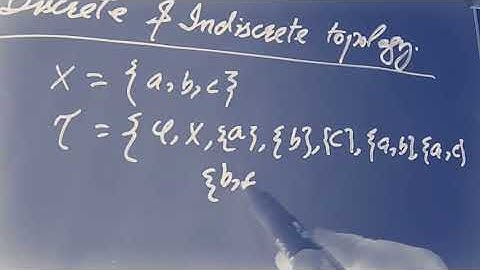 Discrete & Indiscrete topology.
X = { a, b, c}
τ = { φ, X, {a}, {b}, {c}, {a, b}, {a, c}
{b, c